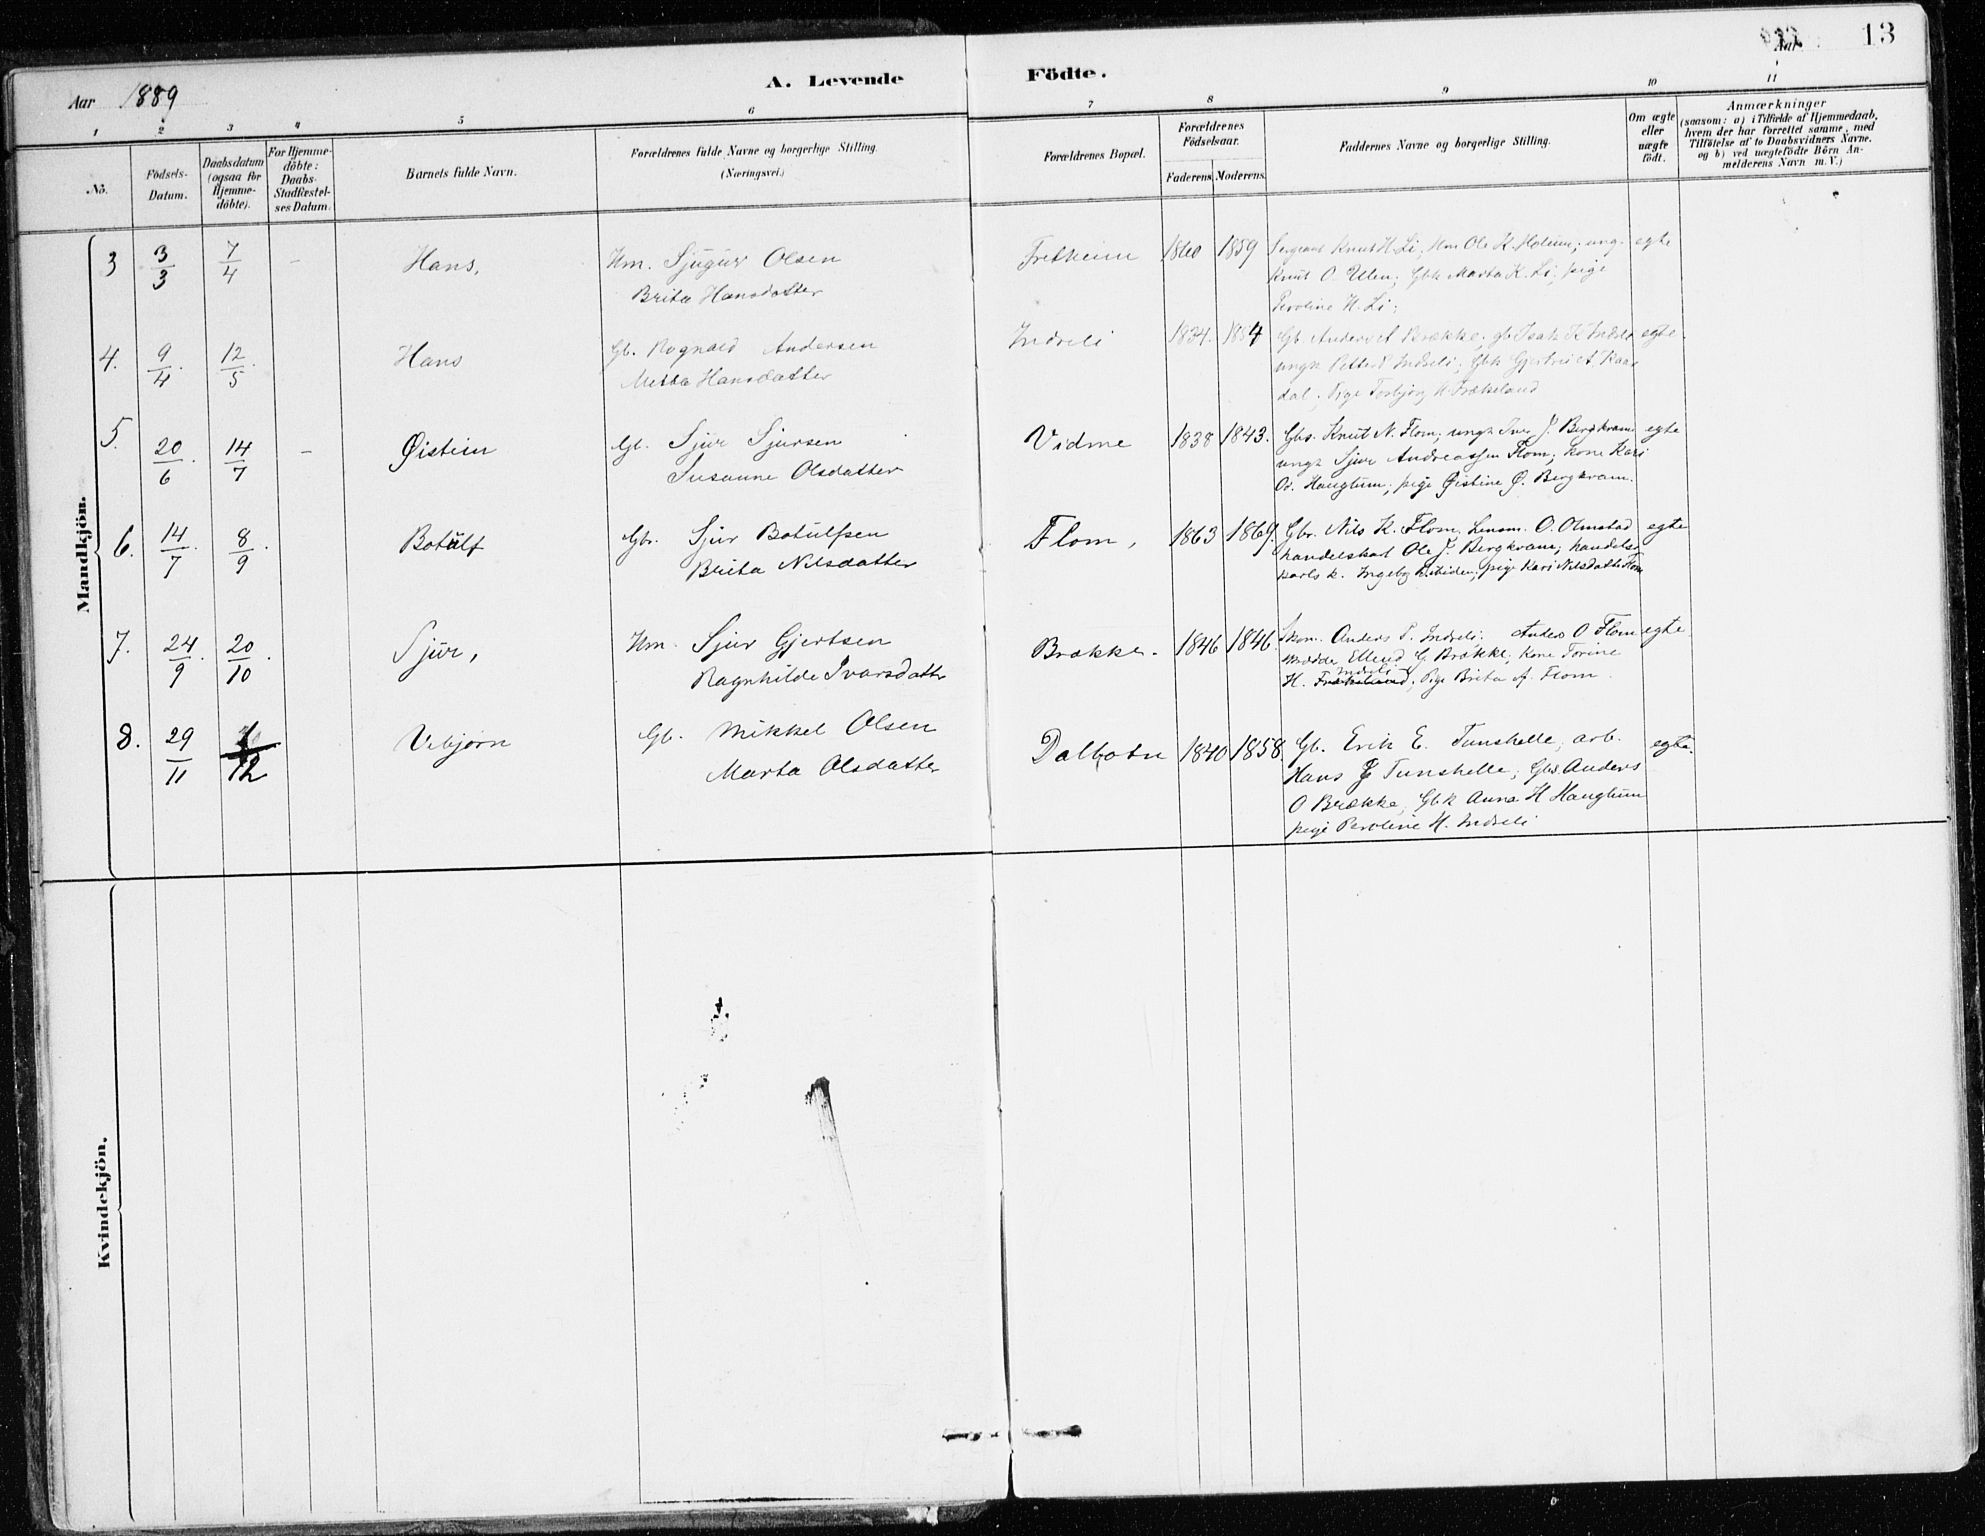 Aar 1889
A. Levende Födte.
Aar 13
1 2 3 4 5 6 7 8 9 10 11
No.
Födsels-Datum.
Daabsdatum (ogsaa for Hjemme-döbte).
For Hjemme-döbte: Daabs-Stadfæstel-ses Datum.
Barnets fulde Navn.
Forældrenes fulde Navne og borgerlige Stilling.
(Næringsvei.)
Forældrenes Bopæl.
Forældrenes Födselsaar.
Faderens. Moderens.
Faddernes Navne og borgerlige Stilling.
Om ægte eller uægte født.
Anmærkninger
(saasom: a) i Tilfælde af Hjemmedaab,
hvem der har forrettet samme, med
Tilföielse af to Daabsvidners Navne.
og b) ved uægtefödte Börn An-
melderens Navn m. V.)
Mandkjön.
3 3/3 7/4 - Hans, Hm. Sjugur Olsen Fretheim 1860 1859 Sergeant Knut H. Li; Hm Ole K. Holum; ung- egte
Brita Hansdatter Knut O. Ulen; Gbk Marta K. Li; pige
Peroline H. Li;
4. 9/4 12/5 Hans Gb. Rognald Andersen Indreli 1834. 1854 Gb. Anders A Brække; gb Isak K Indreli egte.
Metta Hansdatter ungk Petter P Indreli; Gbk Gjertrud A. Kaar
dal; Pige Torbjør H Frækeland
5. 20/6 14/7 - Øistein Gb. Sjur Sjursen Vidme 1838 1843. Gbs. Knut N. Flom; ungk Iver J. Bergkvam egte
Susanne Olsdatter ungk Sjur Andreassen Flom; kone Kari
Od. Haugtun; pige Øistine Ø. Bergkvam.
6. 14/7 8/9 Botulf Gbr. Sjur Botulfsen Flom, 1863 1869. Gbr. Nils K. Flom, Lensm. O. Olmstad egte
Brita Nilsdatter handelskarl Ole J. Bergkvam; handels
karls k. Ingebg; pige Kari Nilsdatter Flom
7. 24/9 20/10 Sjur, Hm. Sjur Gjertsen Brække. 1846 1846. Skom. Anders P. Indreli; Anders O Flom egte
Ragnhilde Ivarsdatter Ellend G Brække; kone Torine
Indreli
H. Frækeland; Pige Brita A. Flom.
8. 29/11 /12 Vebjørn Gb. Mikkel Olsen Dalbotn 1840 1858. Gb. Erik E. Tunshelle; arb. egte.
Marta Olsdatter Hans J Tunshelle; Gbs Anders
O Brække; Gbk Anna H Haugtun
pige Peroline H. Indreli
Kvindekjön.